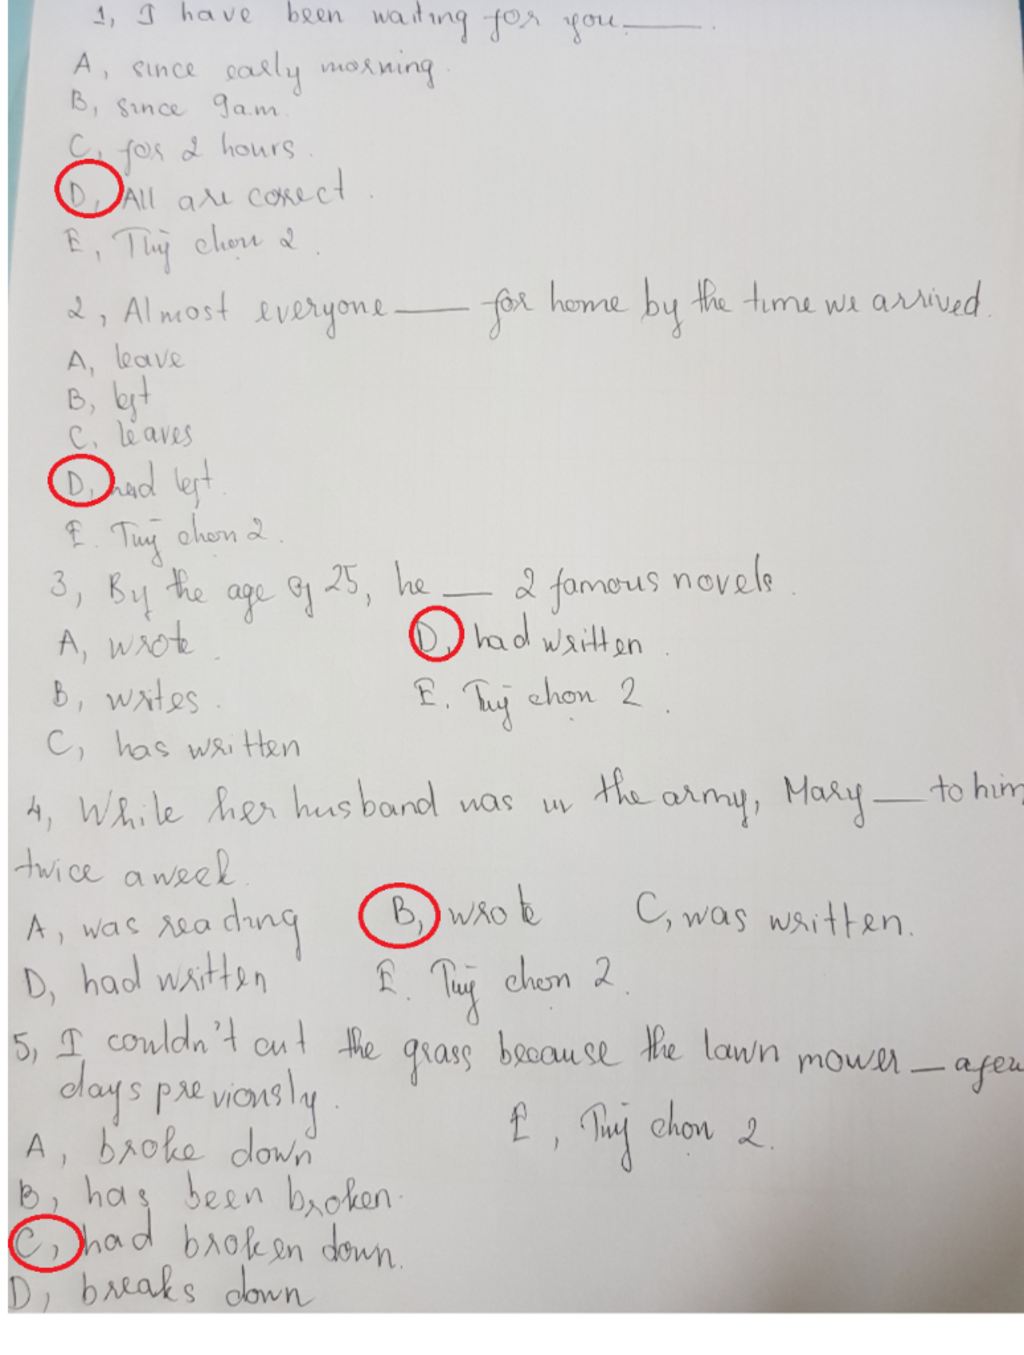 1, I have been waiting for you ____.
A, since early morning.
B, since 9am.
C, for 2 hours.
D, All are correct.
E, Tùy chọn 2.
2, Almost everyone ____ for home by the time we arrived.
A, leave
B, left
C, leaves
D, had left.
E. Tùy chọn 2.
3, By the age of 25, he ____ 2 famous novels.
A, wrote. D, had written.
B, writes. E. Tùy chọn 2.
C, has written
4, While her husband was in the army, Mary ____ to him
twice a week.
A, was reading B, wrote C, was written.
D, had written E. Tùy chọn 2.
5, I couldn't cut the grass because the lawn mower ____ a few
days previously.
E, Tùy chọn 2.
A, broke down
B, has been broken.
C, had broken down.
D, breaks down